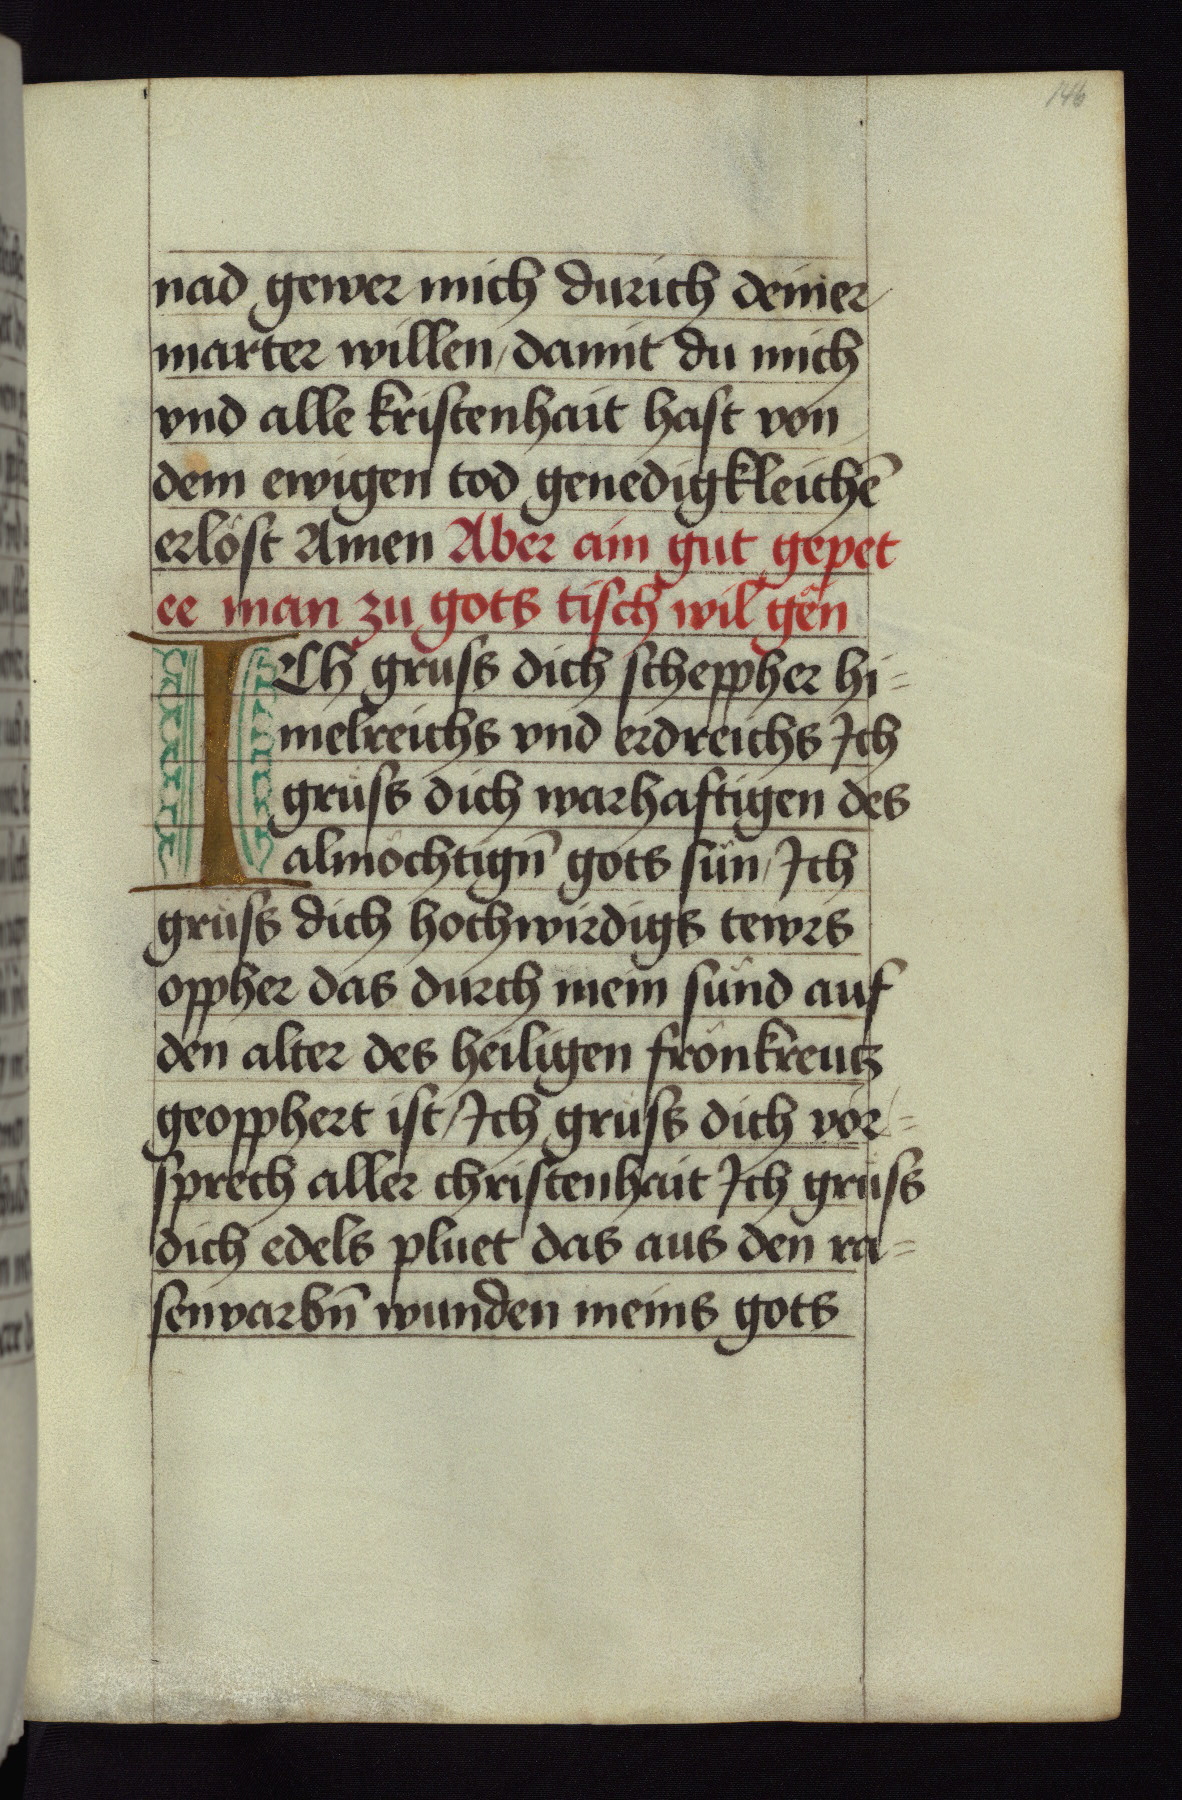 146
nad gewer mich durich deiner
marter willen / damit du mich
vnd alle kristenhait hast von
dem ewigen tod genedigkleichē
erlöst Amen Aber ain gut gepet
ee man zu gots tisch wil gen
ICh gruss dich scheppher hi=
melreichs vnd erdreichs Ich
grüss dich warhaftigen des
almöchtign̄ gots sün / Ich
grüss dich hochwirdigs tewrs
oppher das durch mein sünd auf
den alter des heiligen frönkreutz
geopphert ist / Ich grüss dich vor=
sprech aller christenhait Ich grüss
dich edels pluet das aus den ra=
senvarbn̄ wunden meins gots